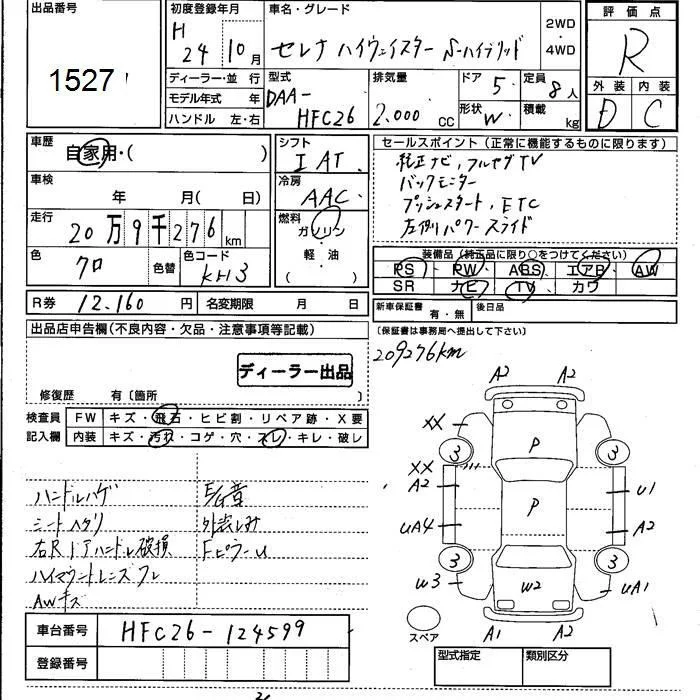 出品番号
1527
初度登録年月
H 24 10月
車名・グレード
セレナ ハイウェイスター S-ハイブリッド
2WD・4WD
評価点
R
外装 内装
D C
ディーラー・並 行
モデル年式 年
ハンドル 左・右
型式
DAA-HFC26
排気量
2.000 cc
ドア 5
形状 W
定員 8人
積載 kg
車歴
自家用・( )
車検
年 月( 日)
走行
20万9千276km
色
クロ
色替
色コード
KH3
シフト
IAT
冷房
AAC
燃料
ガソリン・軽油
( )
R券 12.160円 名変期限 月 日
セールスポイント(正常に機能するものに限ります)
純正ナビ,フルセグTV
バックモニター
プッシュスタート,ETC
左側パワースライド
装備品(純正品に限り○をつけてください)
PS・PW・ABS・エアB・AW
SR・ナビ・TV・カワ
新車保証書 有・無 後日品
(保証書は事務局へ提出して下さい)
209276km
出品店申告欄(不良内容・欠品・注意事項等記載)
ディーラー出品
修復歴 有〔箇所 〕
検査員記入欄
FW キズ・飛石・ヒビ割・リペア跡・X要
内装 キズ・汚れ・コゲ・穴・スレ・キレ・破レ
ハンドルハゲ
シートヘタリ
右Rドアハンドル破損
ハイマウントレンズワレ
AWキズ
外装しみ
Fピラーu
車台番号 HFC26-124599
登録番号
A2 A2
XX
3 P 3
XX
A2 P U1
UA4 A2
3 3
W3 W2 UA1
スペア
A1 A2
型式指定 類別区分